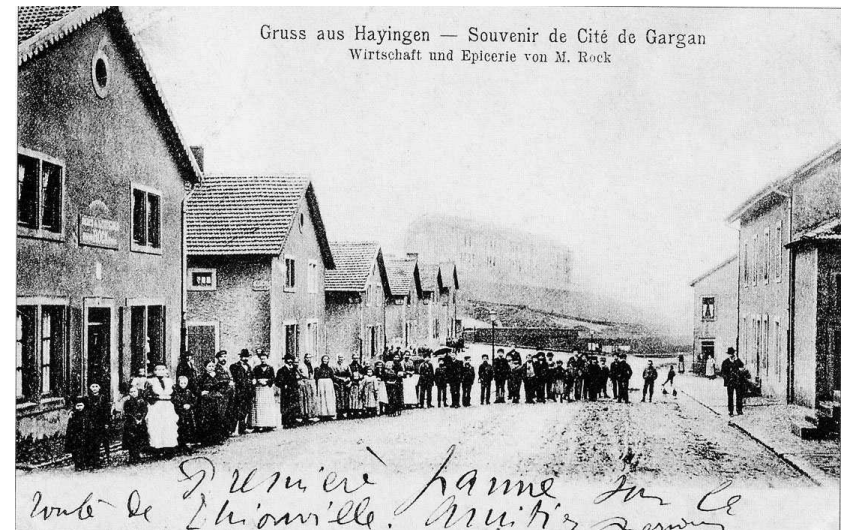 Gruss aus Hayingen — Souvenir de Cité de Gargan
Wirtschaft und Epicerie von M. Rock
Première panne sur la
route de Thionville. Amitiés